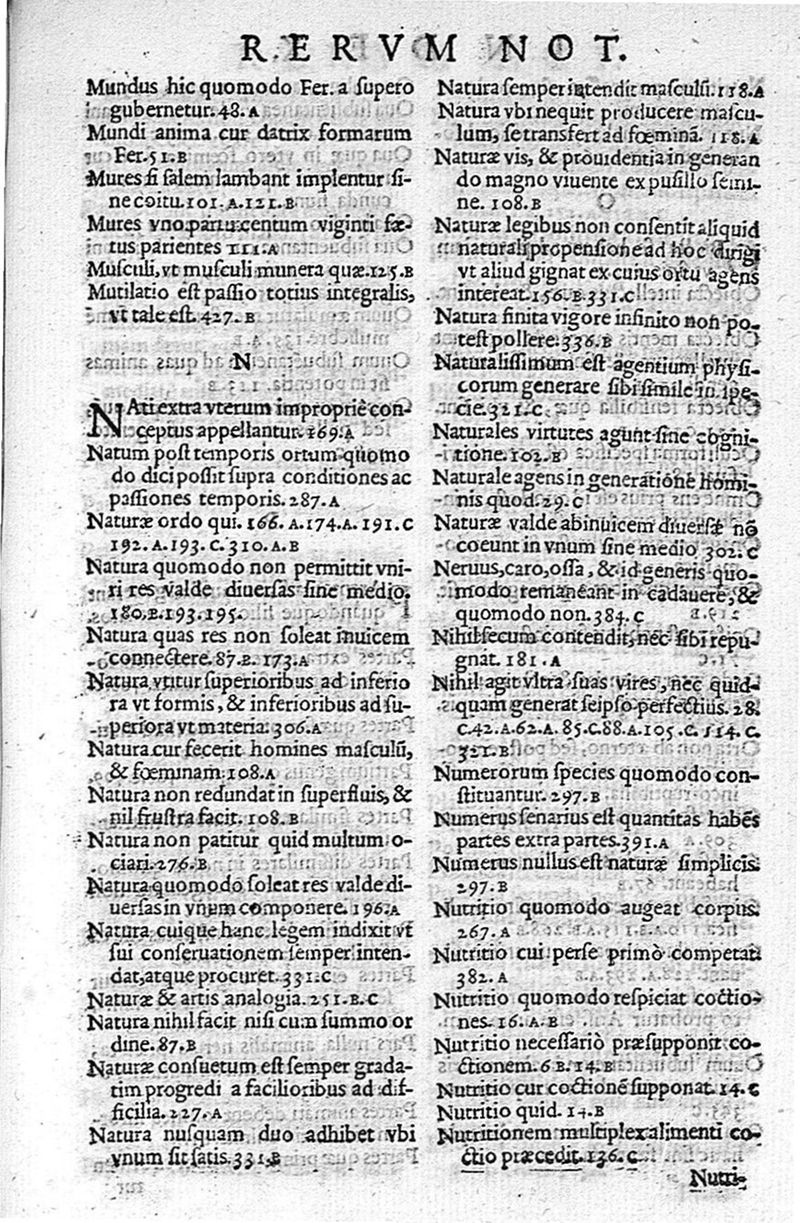 RERVM NOT.
Mundus hic quomodo Fer. a supero
gubernetur. 48. A
Mundi anima cur datrix formarum
Fer. 51. B
Mures si salem lambant implentur si-
ne coitu. 101. A. 121. B
Mures vno partu centum viginti fœ-
tus parientes 111. A
Musculi, vt musculi munera quæ. 125. B
Mutilatio est passio totius integralis,
vt tale est. 427. B
N
NAti extra vterum impropriè con-
ceptus appellantur. 169. A
Natum post temporis ortum quomo
do dici possit supra conditiones ac
passiones temporis. 287. A
Naturæ ordo qui. 166. A. 174. A. 191. C
192. A. 193. C. 310. A. B
Natura quomodo non permittit vni-
ri res valde diuersas sine medio.
180. B. 193. 195.
Natura quas res non soleat inuicem
connectere. 87. B. 173. A
Natura vtitur superioribus ad inferio
ra vt formis, & inferioribus ad su-
periora vt materia. 306. A
Natura cur fecerit homines masculũ,
& fœminam. 108. A
Natura non redundat in superfluis, &
nil frustra facit. 108. B
Natura non patitur quid multum o-
ciari. 276. B
Natura quomodo soleat res valde di-
uersas in vnum componere. 196. A
Natura cuique hanc legem indixit vt
sui conseruationem semper inten-
dat, atque procuret. 331. C
Naturæ & artis analogia. 251. B. C
Natura nihil facit nisi cum summo or
dine. 87. B
Naturæ consuetum est semper grada-
tim progredi a facilioribus ad dif-
ficilia. 227. A
Natura nusquam duo adhibet vbi
vnum sit satis. 331. B
Natura semper intendit masculũ. 118. A
Natura vbi nequit producere mascu-
lum, se transfert ad fœminã. 118. A
Naturæ vis, & prouidentia in generan
do magno viuente ex pusillo semi-
ne. 108. B
Naturæ legibus non consentit aliquid
naturali propensione ad hoc dirigi
vt aliud gignat ex cuius ortu agens
intereat. 156. B. 331. C
Natura finita vigore infinito non po-
test pollere. 336. B
Naturalissimum est agentium physi-
corum generare sibi simile in spe-
cie. 321. C
Naturales virtutes agunt sine cogni-
tione. 102. B
Naturale agens in generatione homi-
nis quod. 29. C
Naturæ valde abinuicem diuersæ nõ
coeunt in vnum sine medio 302. C
Neruus, caro, ossa, & id generis quo-
modo remaneant in cadauere, &
quomodo non. 384. C
Nihil secum contendit, nec sibi repu-
gnat. 181. A
Nihil agit vltra suas vires, nec quid-
quam generat seipso perfectius. 28.
C. 42. A. 62. A. 85. C. 88. A. 105. C. 114. C.
321. B
Numerorum species quomodo con-
stituantur. 297. B
Numerus senarius est quantitas habẽs
partes extra partes. 391. A
Numerus nullus est naturæ simplicis.
297. B
Nutritio quomodo augeat corpus.
267. A
Nutritio cui per se primò competat.
382. A
Nutritio quomodo respiciat coctio-
nes. 16. A. B
Nutritio necessariò præsupponit co-
ctionem. 6 B. 14. B
Nutritio cur coctionẽ supponat. 14. C
Nutritio quid. 14. B
Nutritionem multiplex alimenti co-
ctio præcedit. 136. C
Nutri-